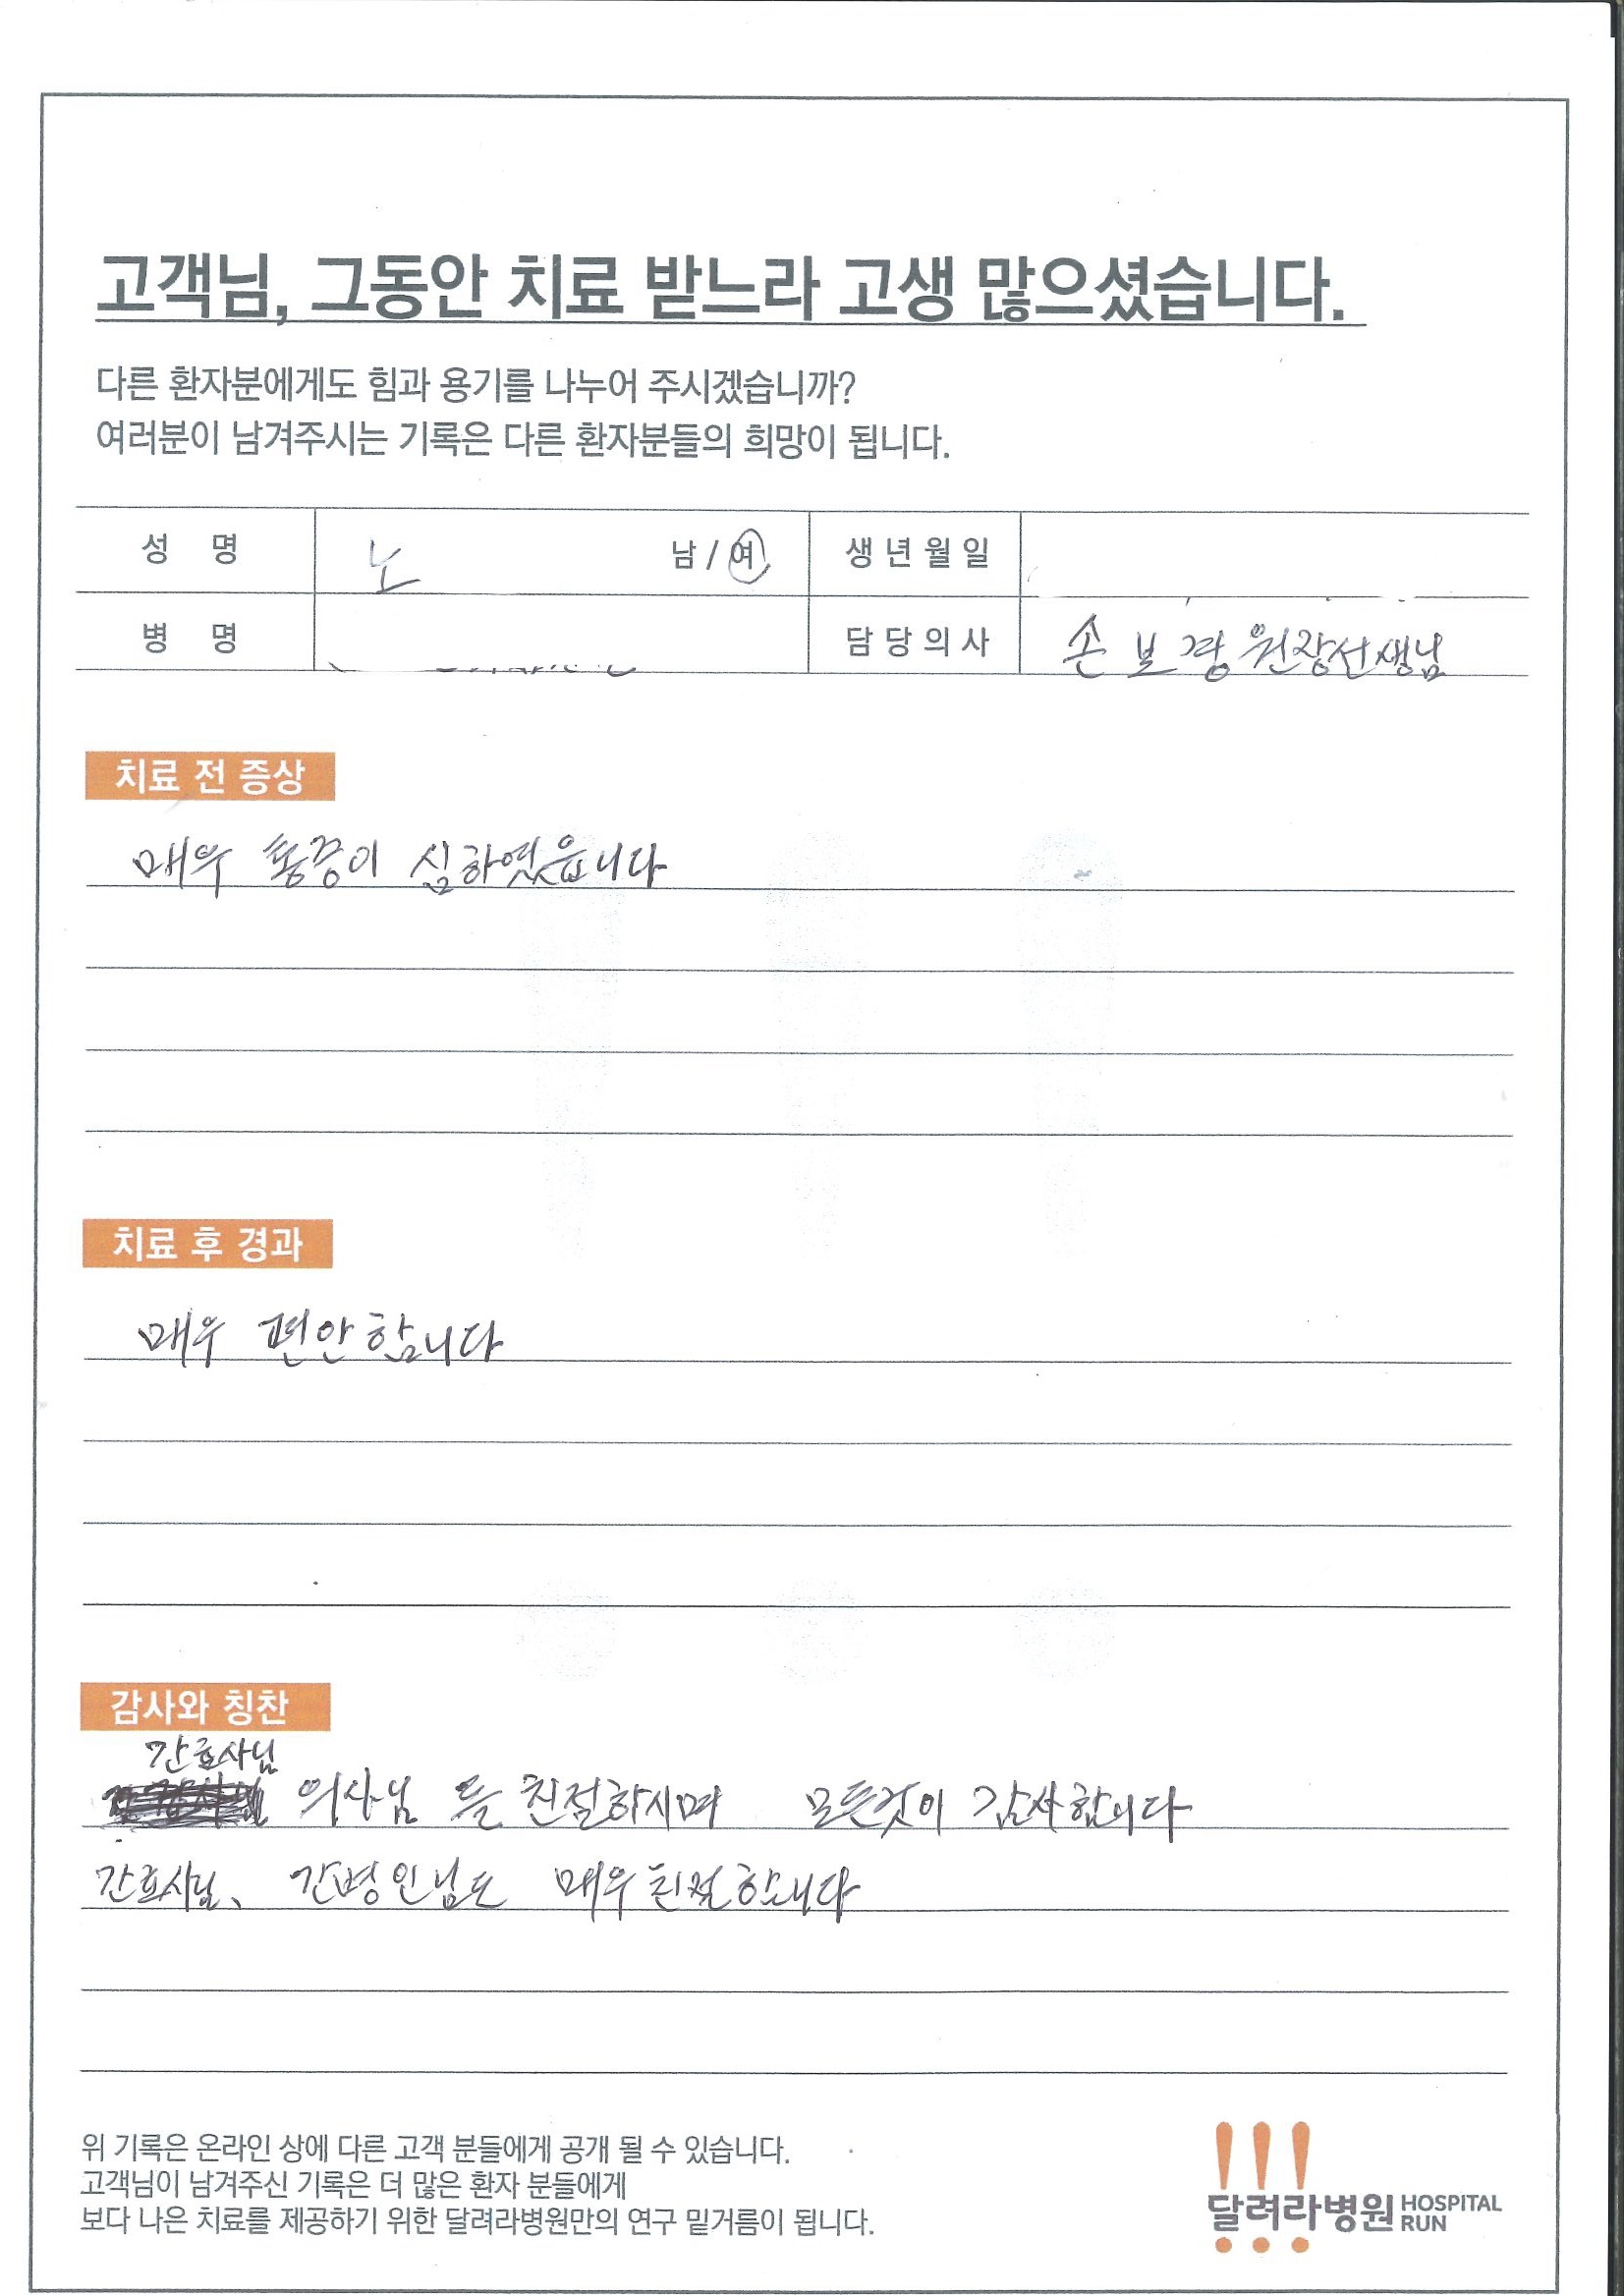 고객님, 그동안 치료 받느라 고생 많으셨습니다.
다른 환자분에게도 힘과 용기를 나누어 주시겠습니까?
여러분이 남겨주시는 기록은 다른 환자분들의 희망이 됩니다.
성 명 노 남 / 여 생년월일
병 명 담당의사 손보경 원장선생님
치료 전 증상
매우 통증이 심하였읍니다
치료 후 경과
매우 편안합니다
감사와 칭찬
간호사님
의사님 들 친절하시며 모든것이 감사합니다
간호사님、 간병인님도 매우 친절합니다
위 기록은 온라인 상에 다른 고객 분들에게 공개 될 수 있습니다.
고객님이 남겨주신 기록은 더 많은 환자 분들에게
보다 나은 치료를 제공하기 위한 달려라병원만의 연구 밑거름이 됩니다.
달려라병원 HOSPITAL RUN